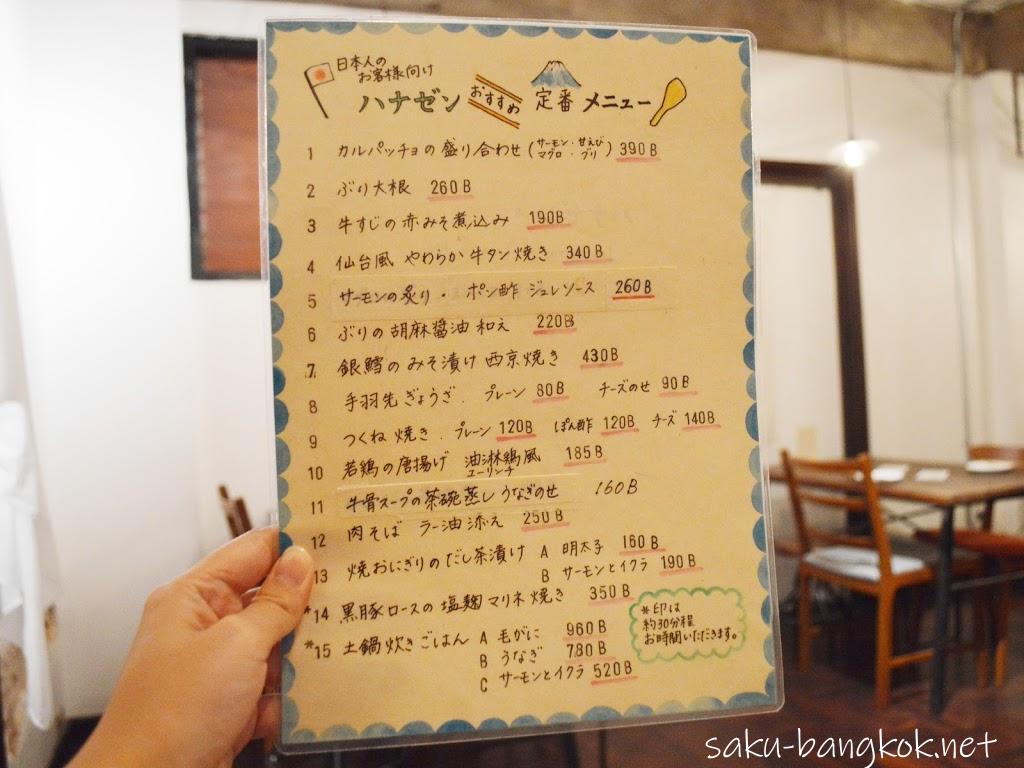 日本人の
お客様向け
ハナゼン おすすめ 定番メニュー
1 カルパッチョの盛り合わせ (サーモン・甘えび マグロ・ブリ) 390B
2 ぶり大根 260B
3 牛すじの赤みそ煮込み 190B
4 仙台風 やわらか牛タン焼き 340B
5 サーモンの炙り・ポン酢ジュレソース 260B
6 ぶりの胡麻醤油和え 220B
7 銀鱈のみそ漬け西京焼き 430B
8 手羽先ぎょうざ. プレーン 80B チーズのせ 90B
9 つくね焼き. プレーン 120B ぽん酢 120B チーズ 140B
10 若鶏の唐揚げ 油淋鶏風 185B
ユーリンチ
11 牛骨スープの茶碗蒸し うなぎのせ 160B
12 肉そば ラー油添え 250B
13 焼おにぎりのだし茶漬け A 明太子 160B
B サーモンとイクラ 190B
*14 黒豚ロースの塩麹マリネ焼き 350B
*15 土鍋炊きごはん A 毛がに 960B
B うなぎ 780B
C サーモンとイクラ 520B
*印は
約30分程
お時間いただきます。
saku-bangkok.net